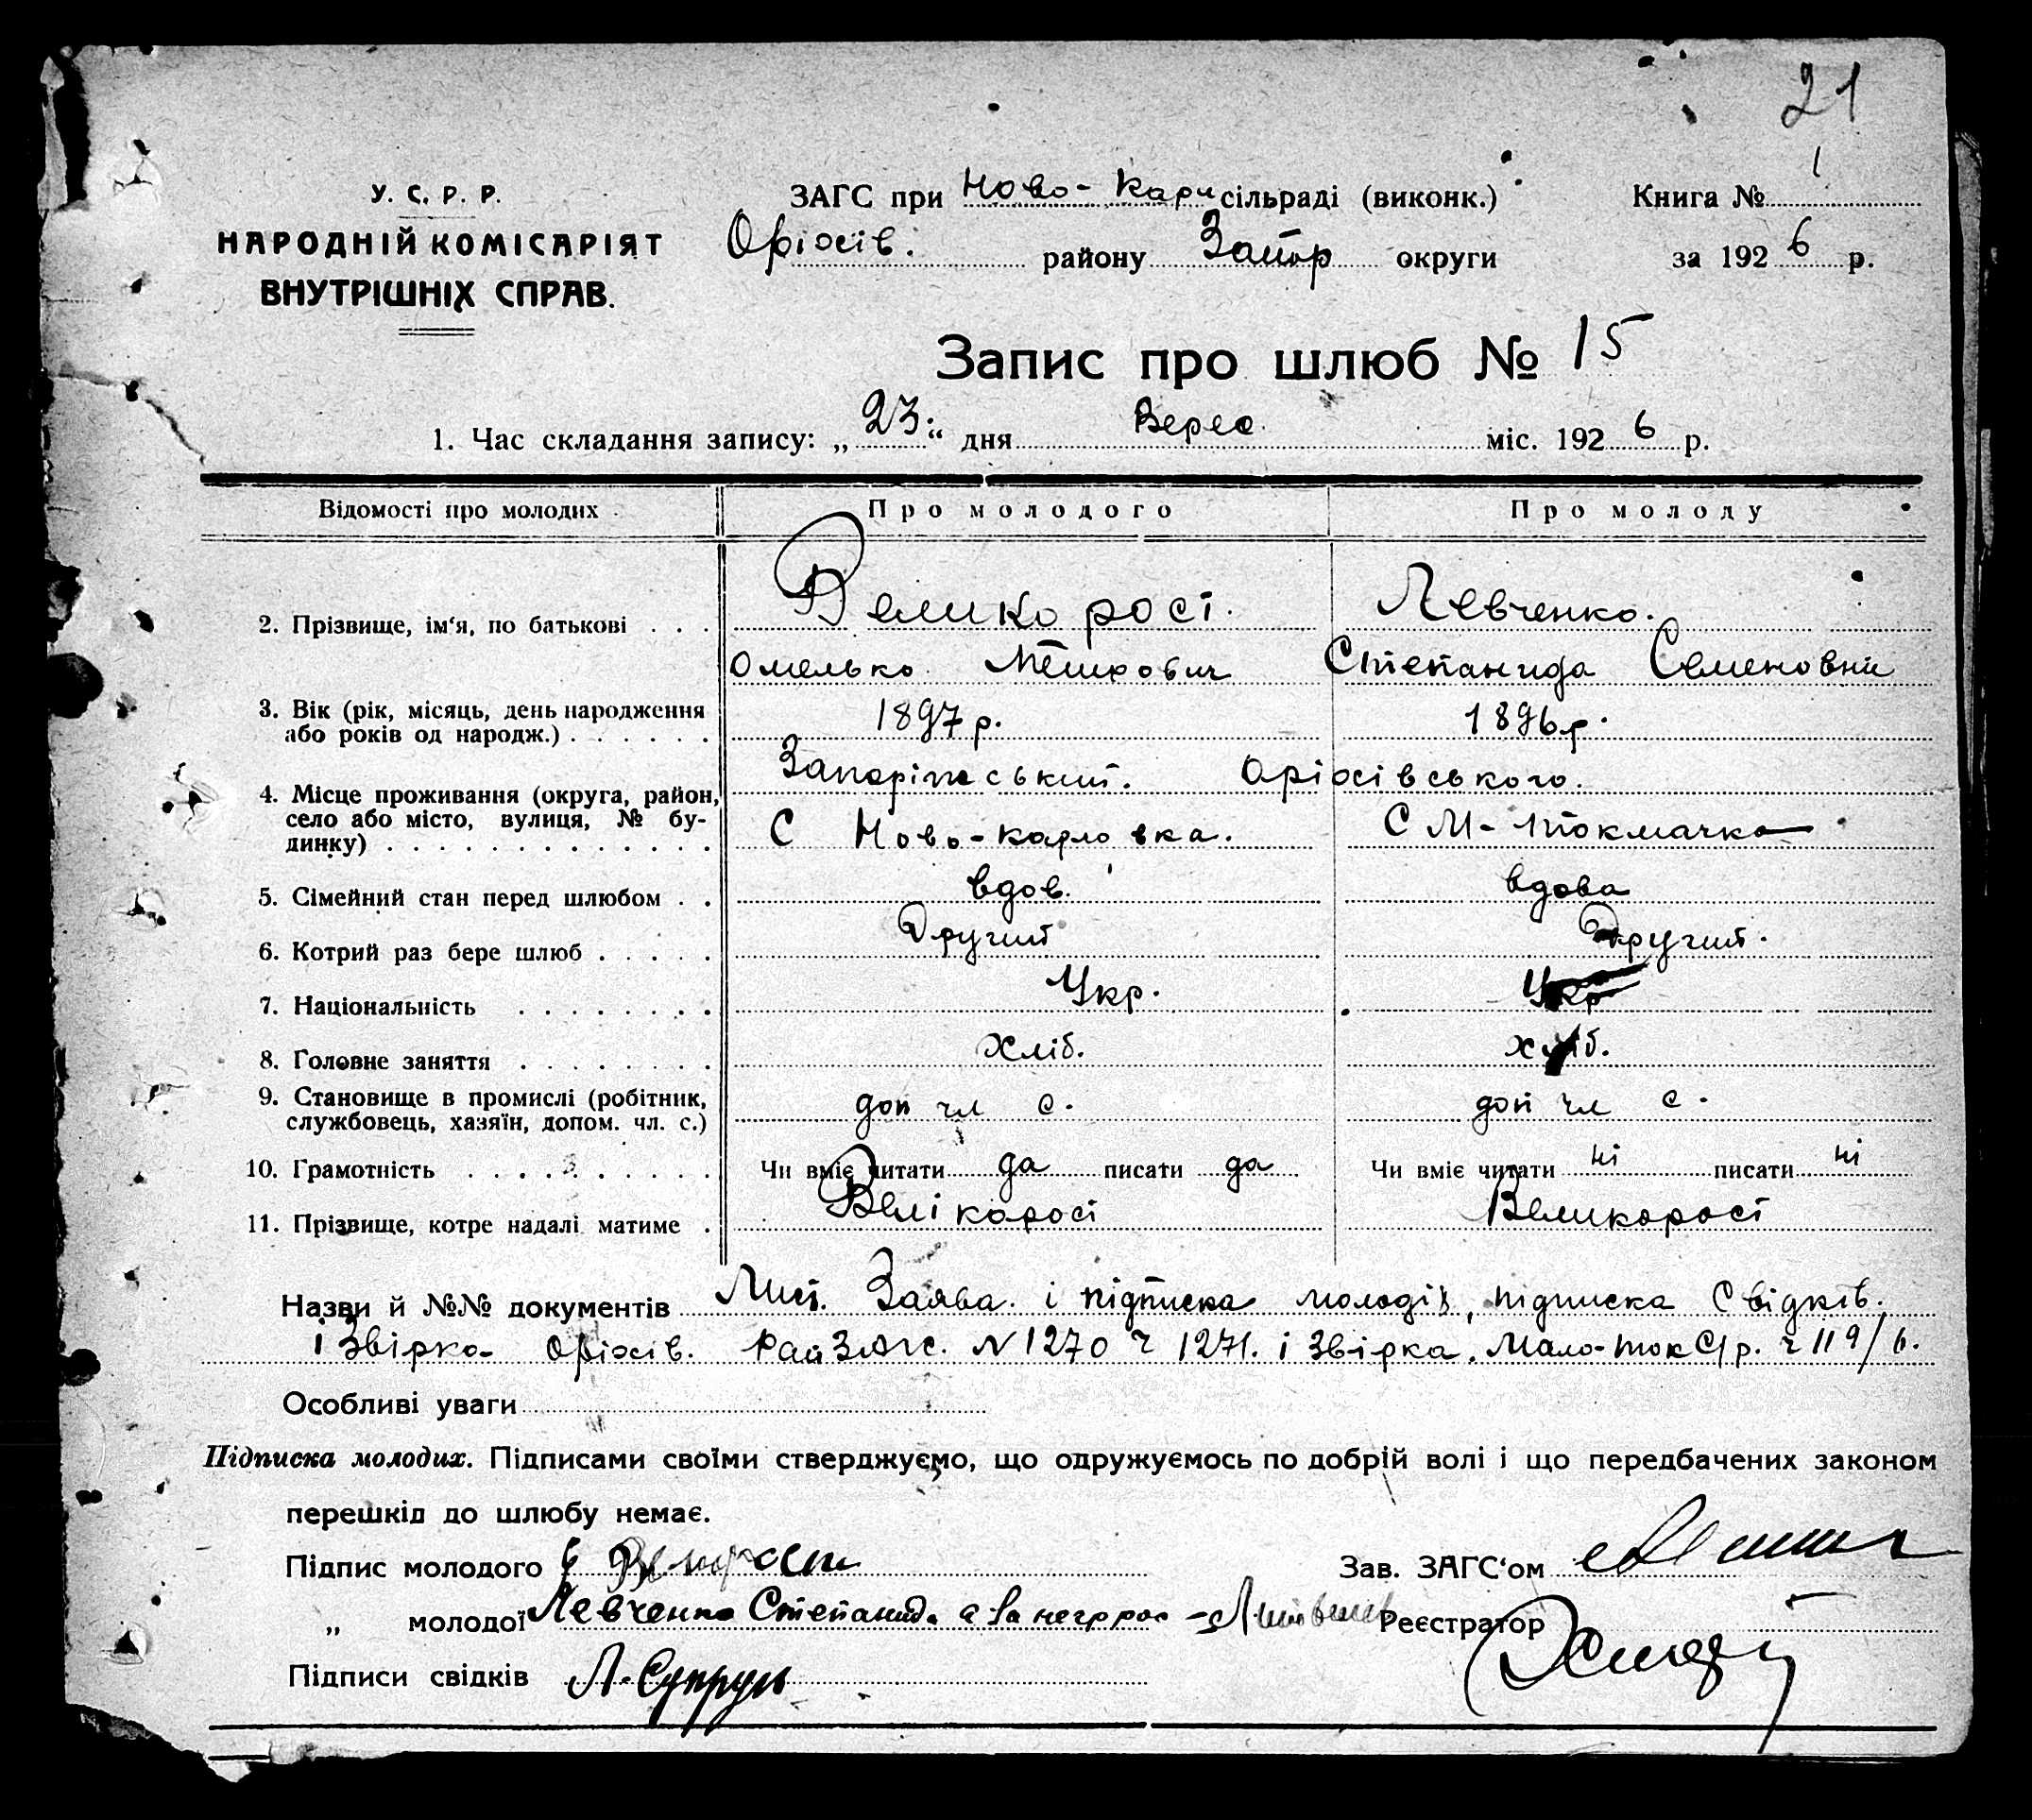 21
У. С. Р. Р.
НАРОДНІЙ КОМІСАРІЯТ
ВНУТРІШНІХ СПРАВ.
ЗАГС при Ново-Карл сільраді (виконк.)
Оріхів. району Запор округи
Книга № 1
за 1926 р.
Запис про шлюб № 15
1. Час складання запису: „23“ дня Верес. міс. 1926 р.
Відомості про молодих Про молодого Про молоду
2. Прізвище, ім'я, по батькові . . . Великорост. Левченко.
Омелько Петрович Степанида Семеновни
3. Вік (рік, місяць, день народження
або років од народж.) . . . . . . 1897 р. 1896 р.
Запоріжський. Оріхівського.
4. Місце проживання (округа, район,
село або місто, вулиця, № бу-
динку) . . . . . . . . . . . . . С Ново-Карловка. С М-Токмачка
5. Сімейний стан перед шлюбом . . вдов. вдова
6. Котрий раз бере шлюб . . . . . Другий Другий.
7. Національність . . . . . . . . Укр. Укр
8. Головне заняття . . . . . . . . Хліб. хліб.
9. Становище в промислі (робітник,
службовець, хазяїн, допом. чл. с.) доп чл с. доп чл с.
10. Грамотність . . . . . . . . . . Чи вміє читати да писати да Чи вміє читати ні писати ні
11. Прізвище, котре надалі матиме . Велікорост Великорост
Назви й №№ документів Лист. Заява. і підписка молодіх, підписка Свідків.
і Звірка Оріхів. РайЗАГС. N 1270 ч 1271. і Звірка. Мало-Ток С/р. ч 119/6.
Особливі уваги
Підписка молодих. Підписами своїми стверджуємо, що одружуємось по добрій волі і що передбачених законом
перешкід до шлюбу немає.
Підпис молодого
Зав. ЗАГС'ом
„ молодої Левченко Степанида а за неграмо
Реєстратор
Підписи свідків Л. Супрун